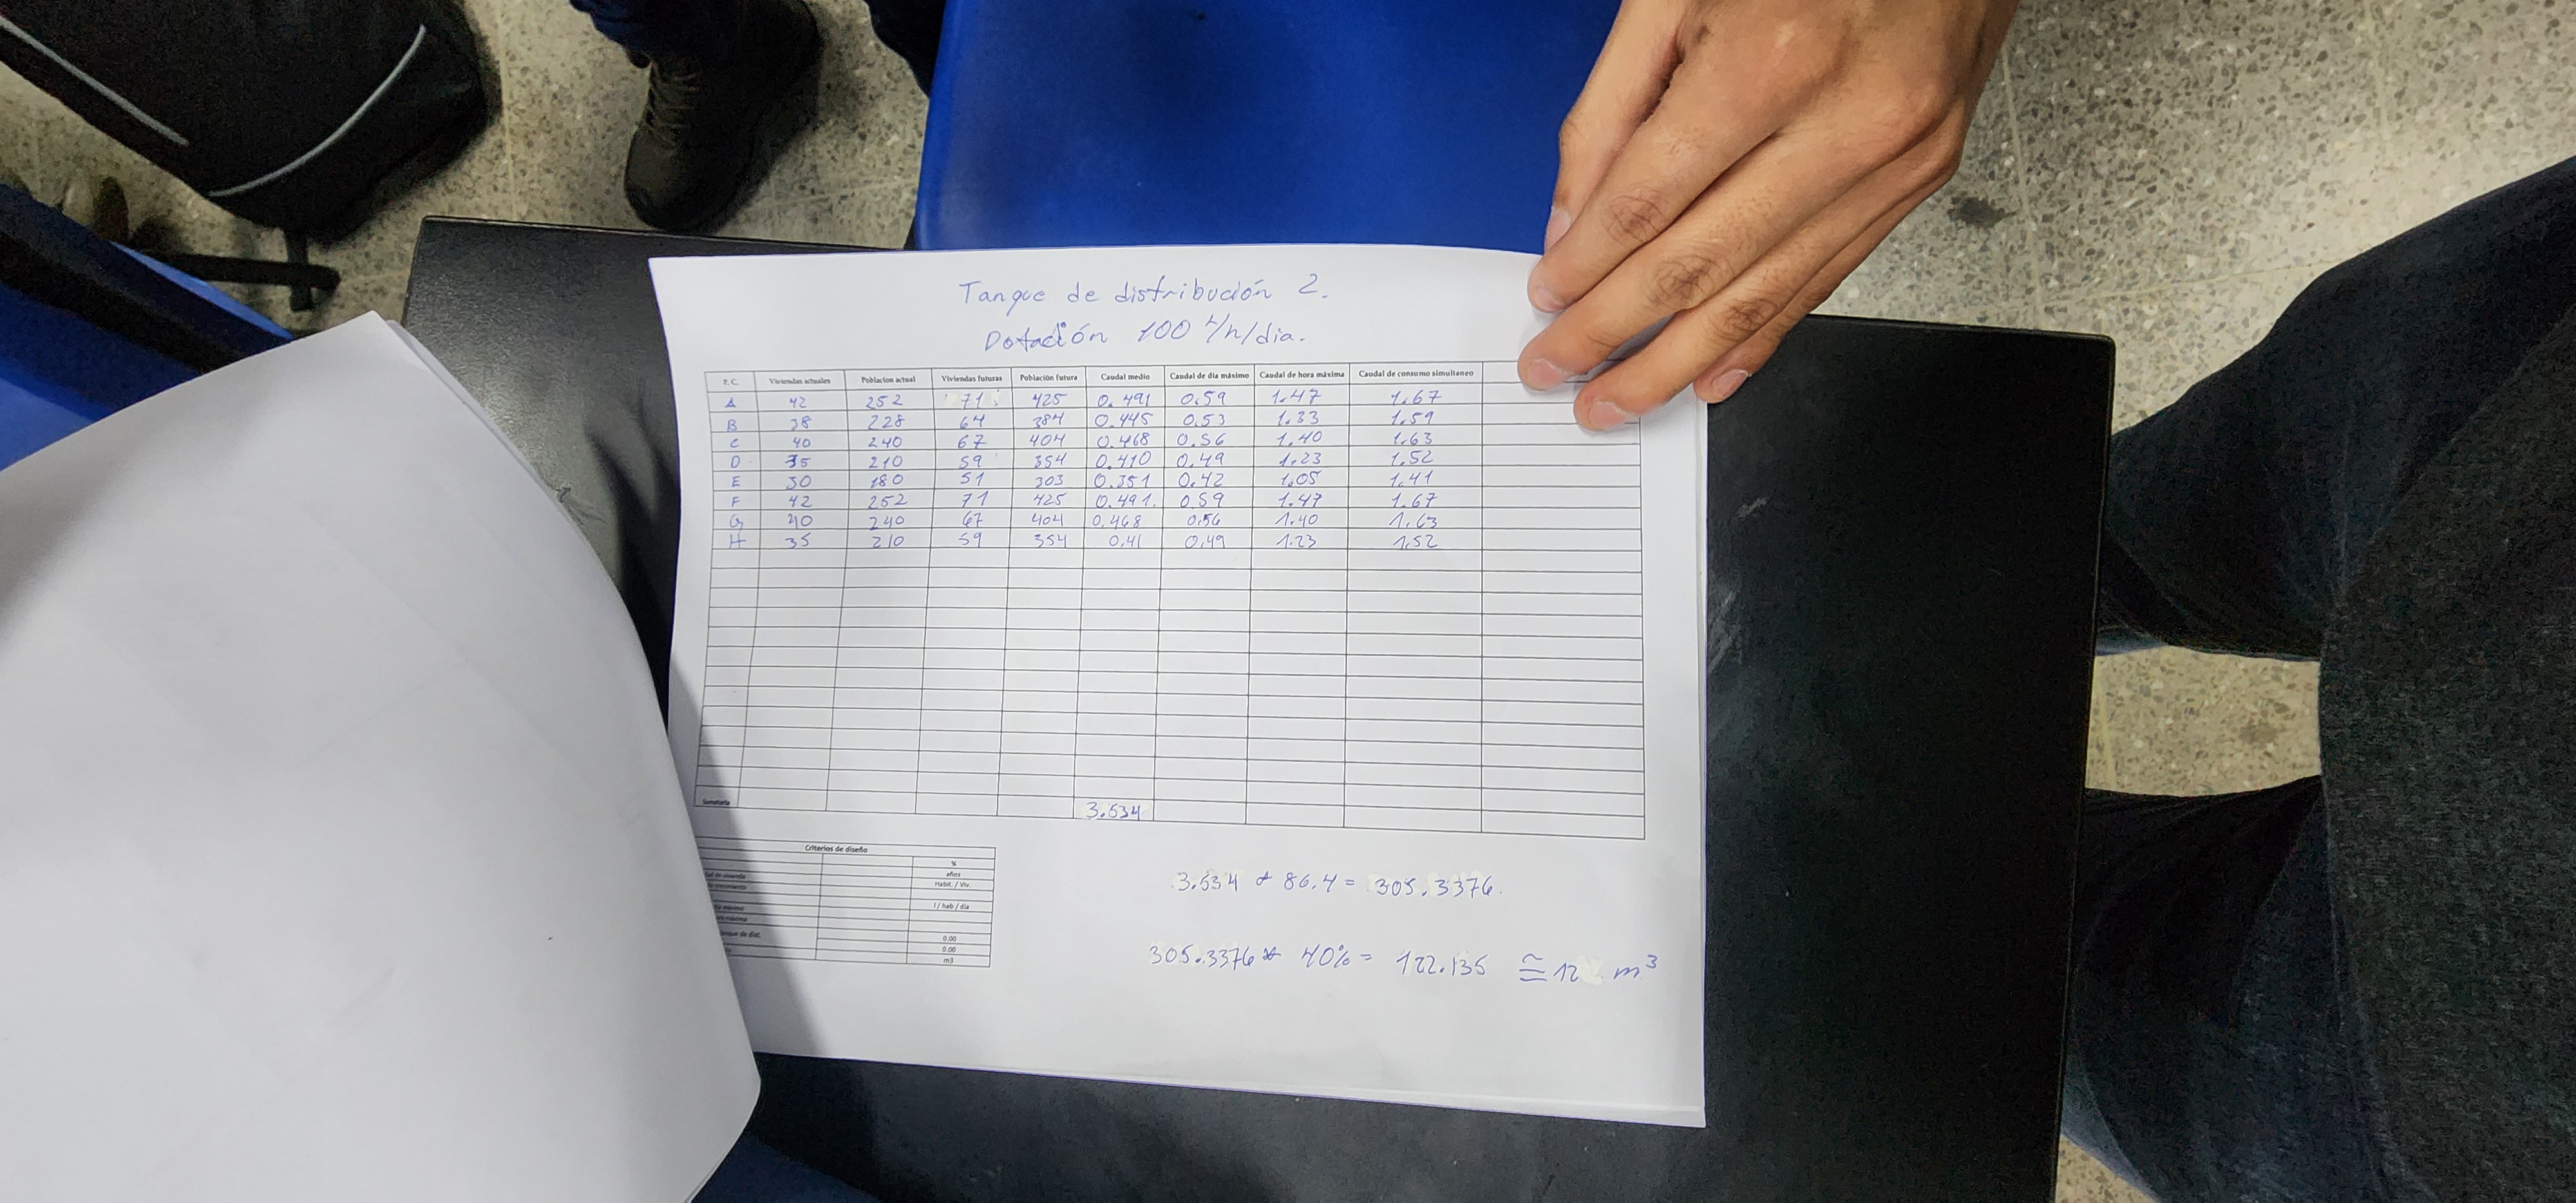 Tanque de distribución 2.
Dotación 100 L/h/dia.
P. C. Viviendas actuales Poblacion actual Viviendas futuras Población futura Caudal medio Caudal de día máximo Caudal de hora máxima Caudal de consumo simultaneo
A 42 252 71 425 0.491 0.59 1.47 1.67
B 38 228 64 384 0.445 0.53 1.33 1.59
C 40 240 67 404 0.468 0.56 1.40 1.63
D 35 210 59 354 0.410 0.49 1.23 1.52
E 30 180 51 303 0.351 0.42 1.05 1.41
F 42 252 71 425 0.491. 0.59 1.47 1.67
G 40 240 67 404 0.468 0.56 1.40 1.63
H 35 210 59 354 0.41 0.49 1.23 1.52
Sumatoria 3.534
Criterios de diseño
%
años
Habit. / Viv.
l / hab / día
0.00
0.00
m3
3.534 * 86.4 = 305.3376.
305.3376 * 40% = 122.135 ≅ 12 m³